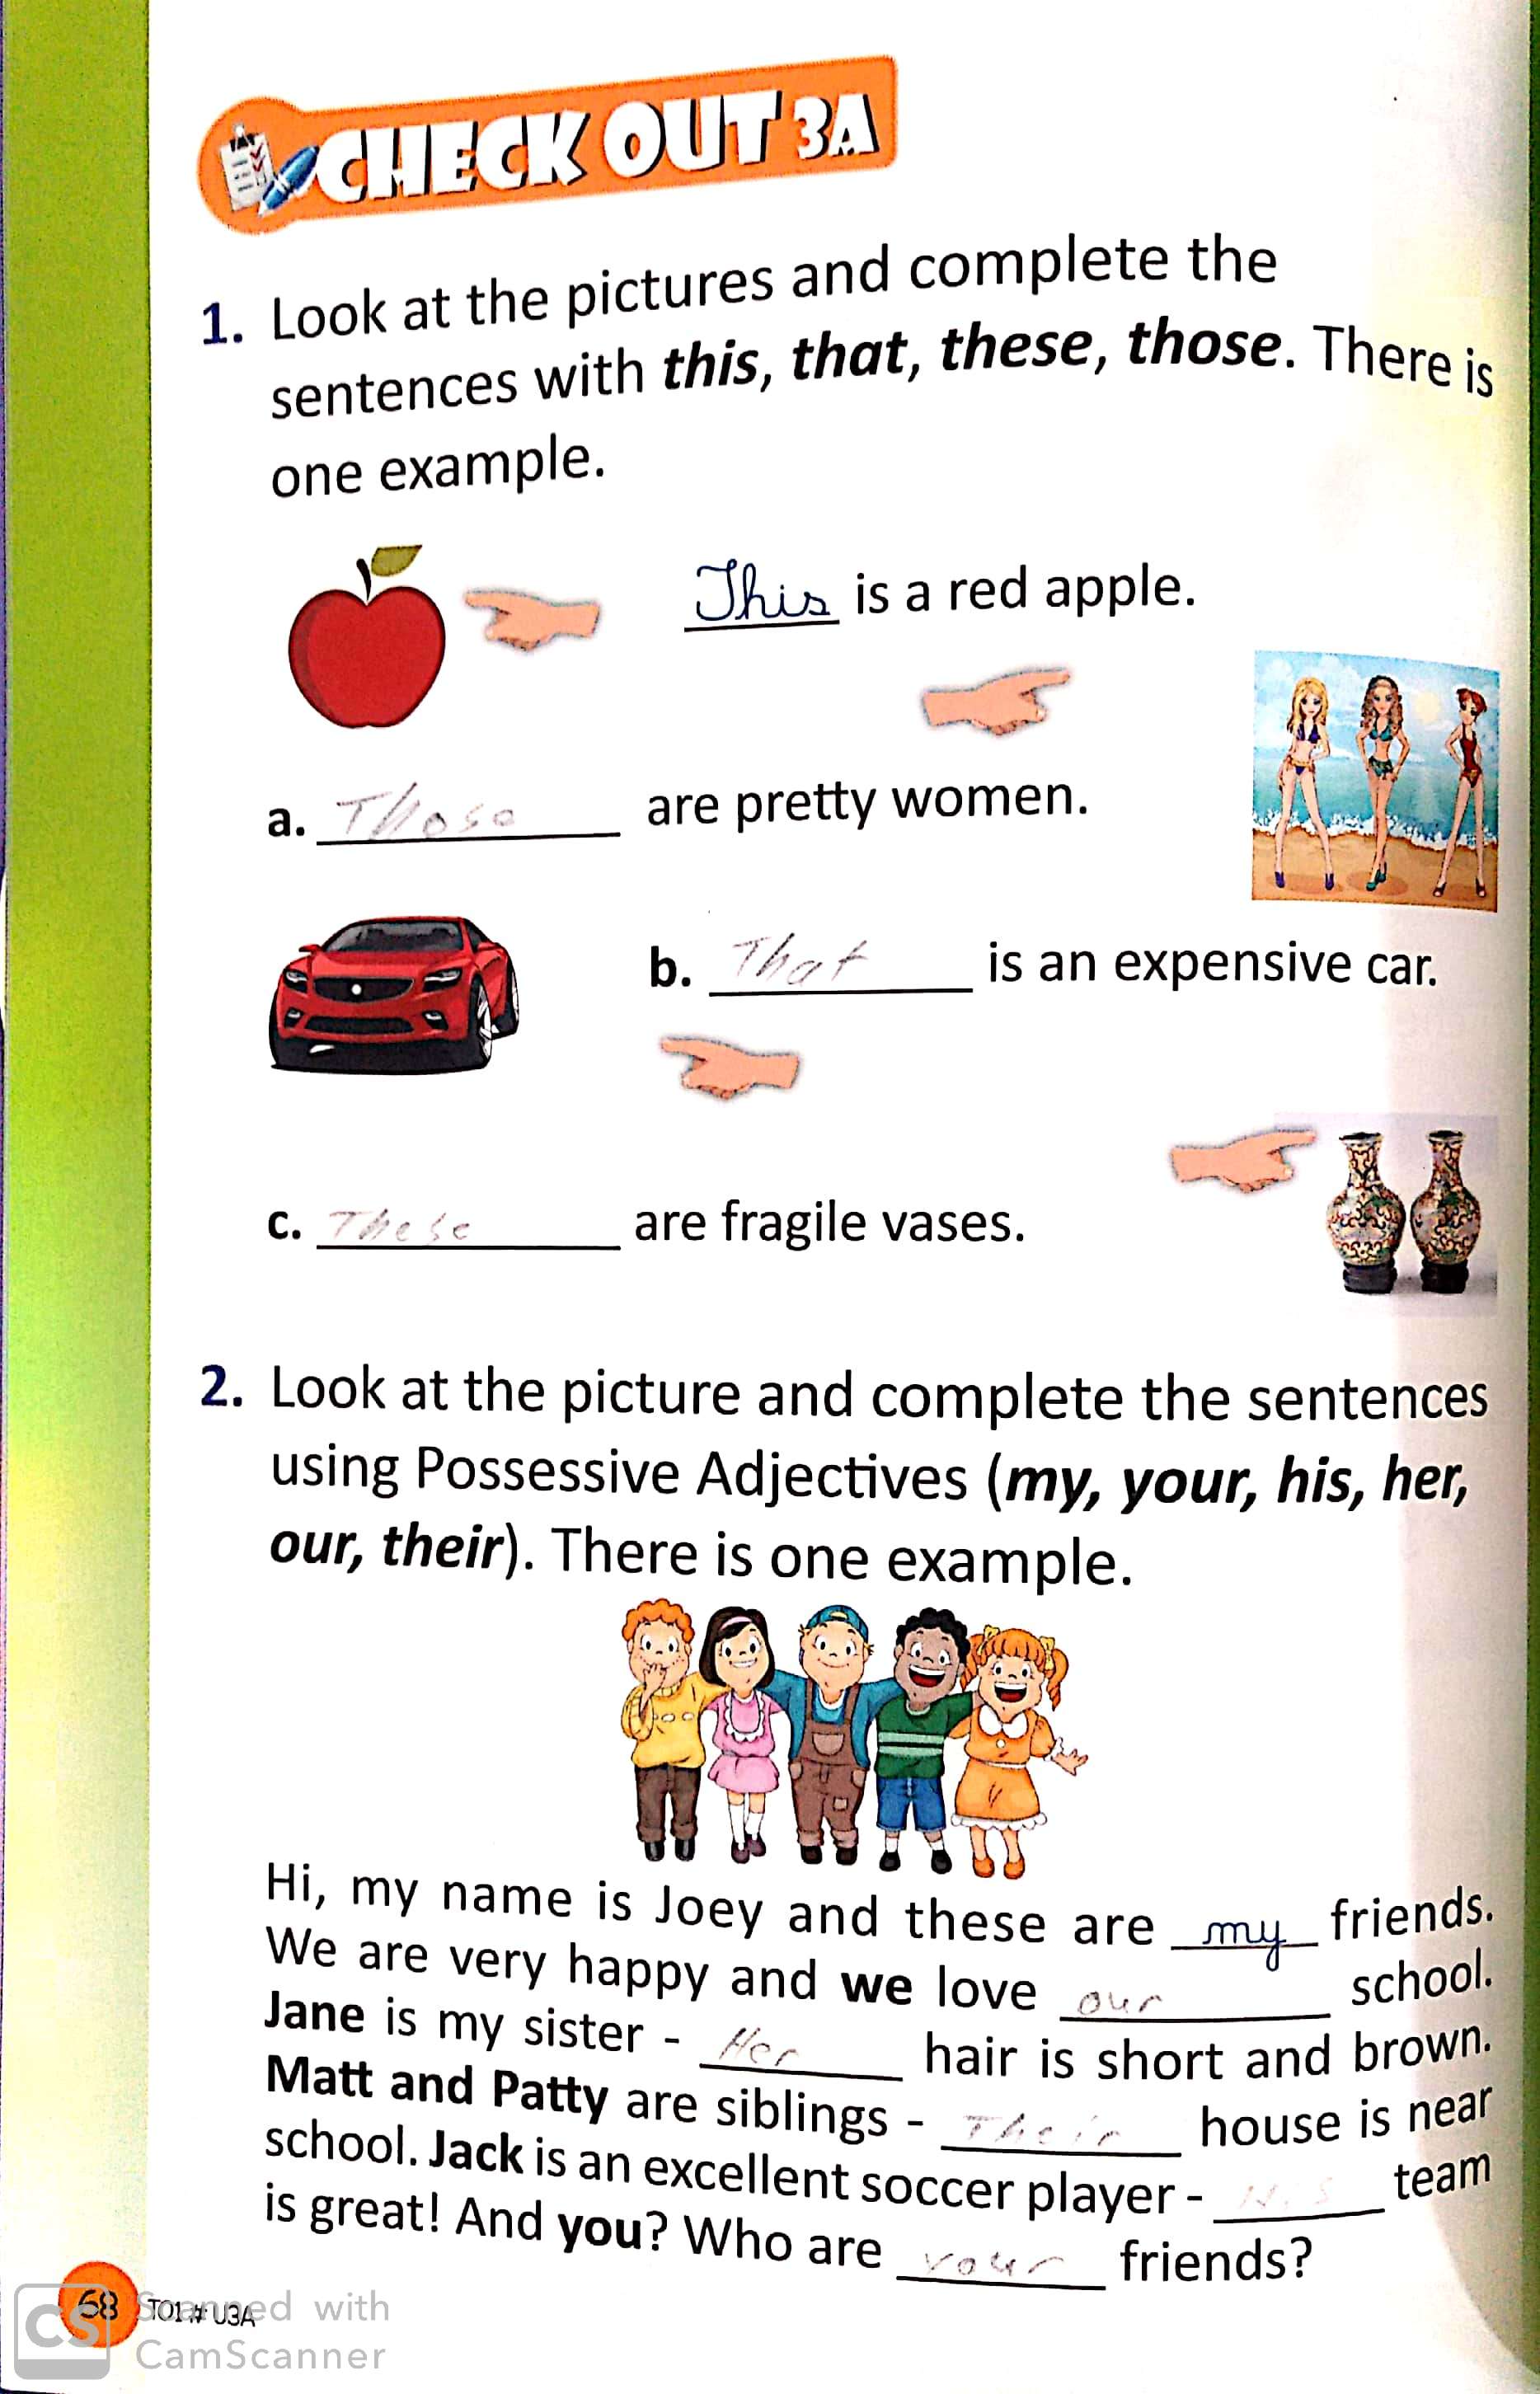 CHECK OUT 3A
1. Look at the pictures and complete the
sentences with this, that, these, those. There is
one example.
This is a red apple.
a. Those are pretty women.
b. That is an expensive car.
c. These are fragile vases.
2. Look at the picture and complete the sentences
using Possessive Adjectives (my, your, his, her,
our, their). There is one example.
Hi, my name is Joey and these are my friends.
We are very happy and we love our school.
Jane is my sister - Her hair is short and brown.
Matt and Patty are siblings - Their house is near
school. Jack is an excellent soccer player - His team
is great! And you? Who are your friends?
68 T01 # U3A
CS Scanned with
CamScanner